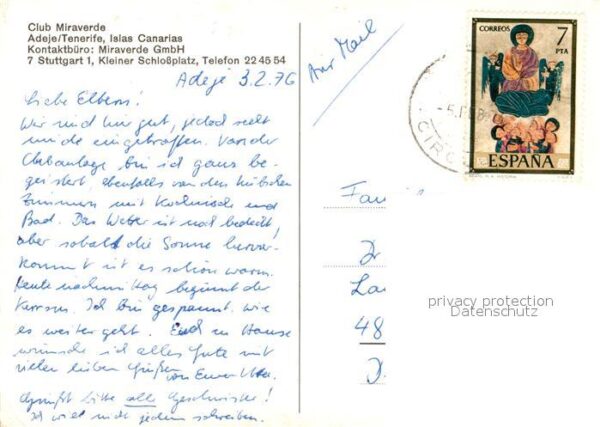 Club Miraverde
Adeje/Tenerife, Islas Canarias
Kontaktbüro: Miraverde GmbH
7 Stuttgart 1, Kleiner Schloßplatz, Telefon 22 45 54
Adeje 3.2.76
Liebe Eltern!
Wir sind hier gut, jedoch sehr
müde eingetroffen. Von der
Clubanlage bin ich ganz be-
geistert, ebenfalls von den hübschen
Zimmern mit Kochnisch und
Bad. Das Wetter ist noch bedeckt,
aber sobald die Sonne hervor-
kommt ist es schön warm.
Heute nachmittag beginnt der
Kursus. Ich bin gespannt, wie
es weiter geht. Euch zu Hause
wünsche ich alles Gute mit
vielen lieben Grüßen
von Eurer
Grüßt bitte alle Geschwister!
Ich will nicht jedem schreiben.
Air Mail
CORREOS
7
PTA
ESPAÑA
Fam
Dr
La
48
D
privacy protection
Datenschutz